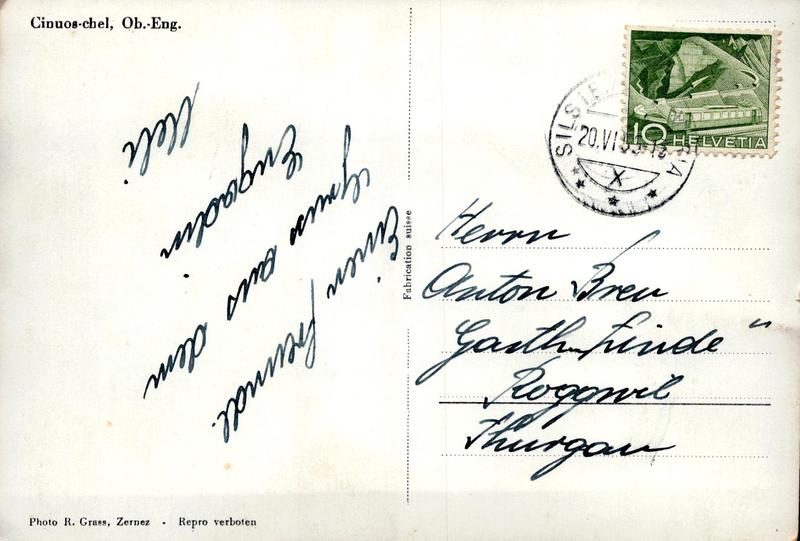 Cinuos-chel, Ob.-Eng.
Einen freundl.
Gruss aus dem
Engadin
Ueli
Fabrication suisse
SILS
20.VI.53
X
10 HELVETIA
Herrn
Anton Breu
Gasth. Linde"
Roggwil
Thurgau
Photo R. Grass, Zernez - Repro verboten